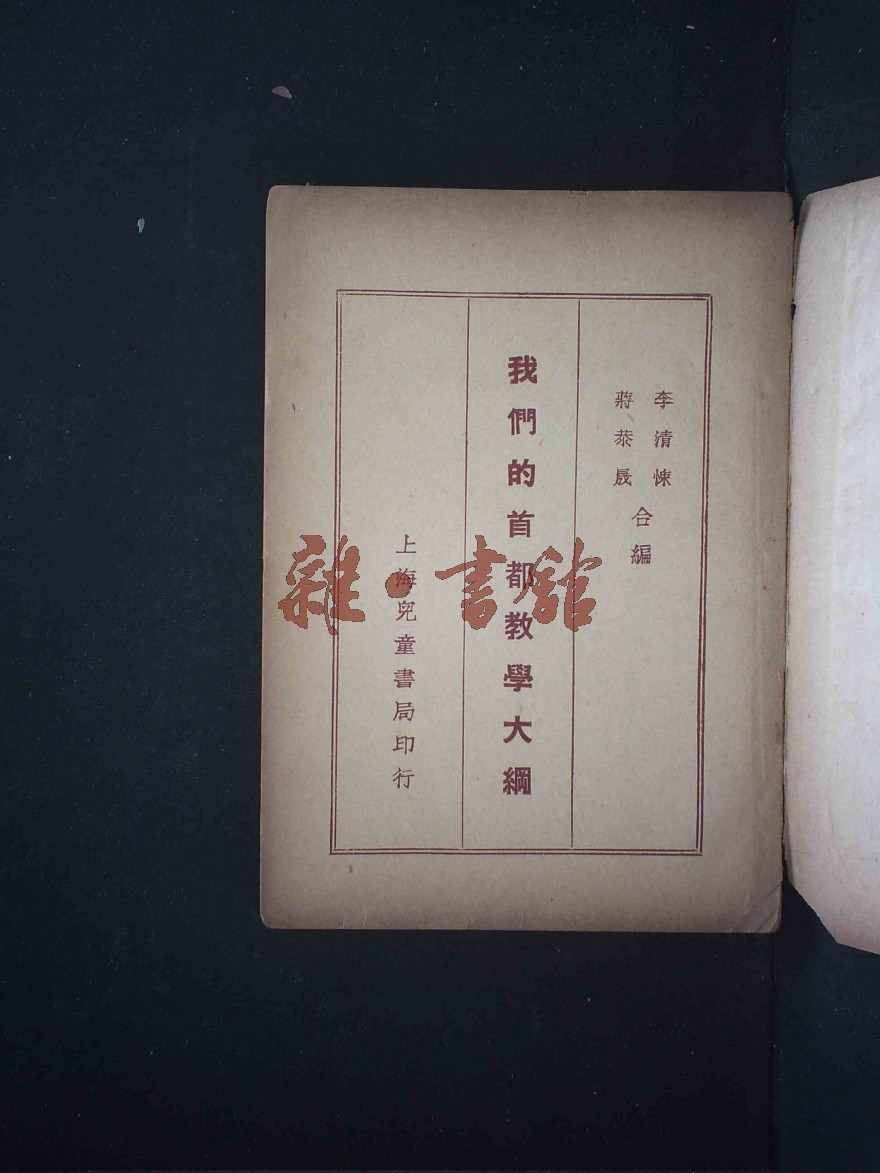 李清悚
蔣恭晟
合編
我們的首都教學大綱
上海兒童書局印行
雜·書館